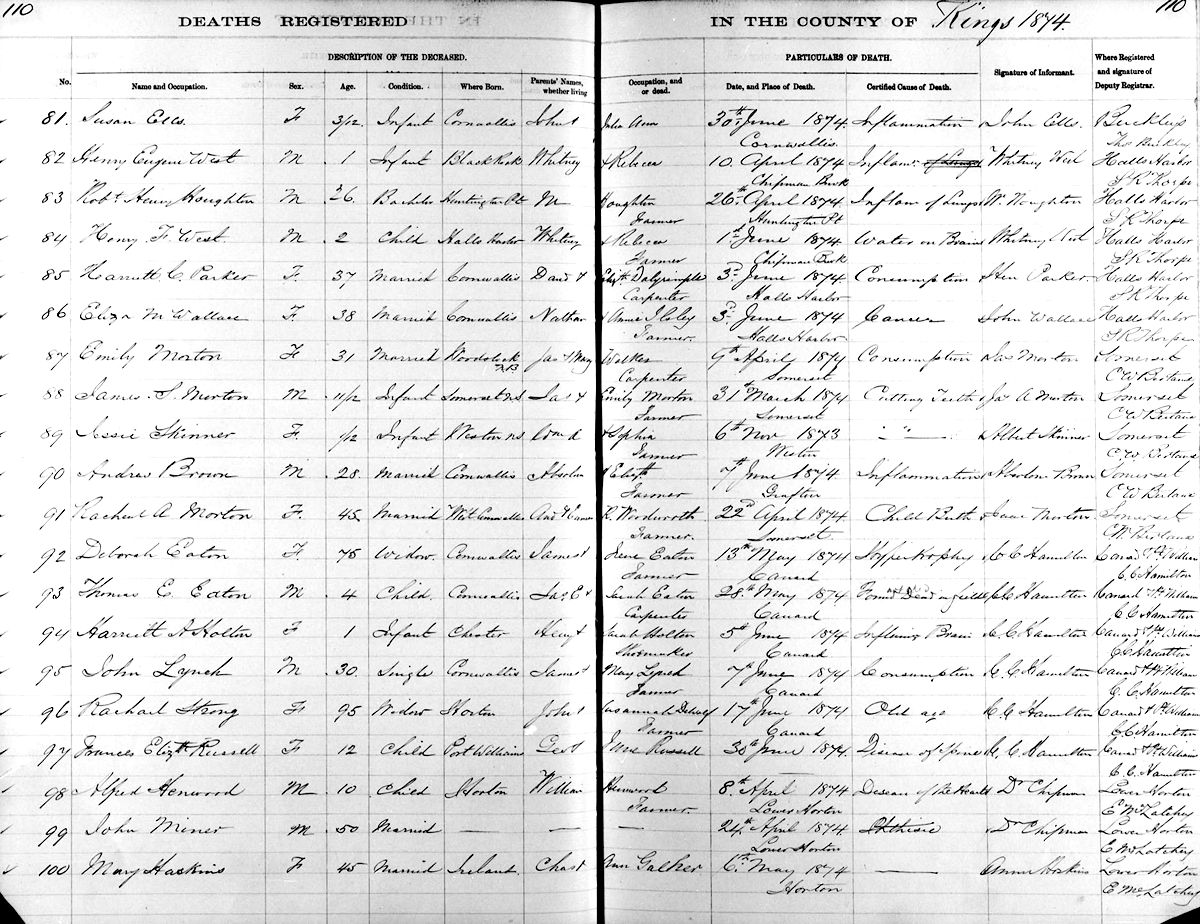 110
DEATHS REGISTERED IN THE COUNTY OF Kings 1874.
110
DESCRIPTION OF THE DECEASED. PARTICULARS OF DEATH.
No. Name and Occupation. Sex. Age. Condition. Where Born. Parents' Names, whether living or dead. Occupation, and Date, and Place of Death. Certified Cause of Death. Signature of Informant. Where Registered and signature of Deputy Registrar.
81. Susan Ells. F 3/12. Infant Cornwallis John & Julia Ann 30th June 1874. Inflammation John Ells. Buckleys
Cornwallis. Thos Buckley
82 Henry Eugene West M 1 Infant Black Rock Whitney & Rebecca 10 April 1874 Inflam: of Lungs Whitney West Halls Harbor
Chipman Brook S R Thorpe
83 Robt Henry Houghton M 26. Bachelor Huntington Pt M Houghton 26th April 1874 Inflam of Lungs Wm Houghton Halls Harbor
Farmer Huntington Pt S R Thorpe
84 Henry F. West. M 2 Child Halls Harbor Whitney & Rebecca 1st June 1874 Water on Brain Whitney West Halls Harbor
Farmer Chipman Brook S R Thorpe
85 Harriett C. Parker F. 37 Married Cornwallis David & Elizth Dalrymple 3d June 1874. Consumption Parker. Halls Harbor
Carpenter Halls Harbor S R Thorpe
86 Eliza M Wallace F. 38 Married Cornwallis Nathan & Annie 3d June 1874 Cancer John Wallace Halls Harbor
Farmer. Halls Harbor S R Thorpe
87 Emily Morton F 31 Married Woodstock NB Jas & Mary Walker 9th April 1874 Consumption Jas Morton Somerset
Carpenter Somerset C W
88 James S. Morton M 11/12 Infant Somerset NS Jas & Emily Morton 31st March 1874 Cutting Teeth Jas A Morton Somerset
Farmer Somerset C W
89 Jessie Skinner F. 1/12 Infant Weston NS & Sophia 6th Nov 1873 " Albert Skinner Somerset
Farmer Weston C W
90 Andrew Brown M 28. Married Cornwallis Absolom & Elizth 7th June 1874. Inflammation Absolom Brown Somerset
Farmer Grafton C W
91 Rachael A. Morton F. 45 Married West Cornwallis R. Woodworth 22d April 1874 Child Birth Isaac Morton Somerset
Farmer. Somerset. C W
92 Deborah Eaton F 78 Widow Cornwallis James & Irene Eaton 13th May 1874 Hypertrophy C C Hamilton Canard Pt William
Farmer Canard C C Hamilton
93 Thomas E. Eaton M 4 Child. Cornwallis Jas E & Sarah Eaton 28th May 1874 Found Dead in field C C Hamilton Canard Pt William
Carpenter Canard C C Hamilton
94 Harriett A Holton F 1 Infant Chester Henry & Sarah Holton 5th June 1874 Inflam'g Brain C C Hamilton Canard Pt William
Shoemaker Canard C C Hamilton
95 John Lynch M 30. Single Cornwallis James & Mary Lynch 7th June 1874 Consumption C C Hamilton Canard Pt William
Farmer Canard C. C. Hamilton
96 Rachael Strong F. 95 Widow Horton John & Susannah DeWolf 17th June 1874 Old age C C Hamilton Canard Pt William
Farmer Canard C C Hamilton
97 Frances Elizth Russell F 12 Child Port Williams Geo & Russell 30th June 1874. Disease of Spine C. C. Hamilton Canard Pt William
C. C. Hamilton
98 Alfred Henwood M. 10 Child Horton William Henwood 8th April 1874 Disease of the Heart Dr Chipman Lower Horton
Farmer. Lower Horton E McLatchey
99 John Miner M. 50 Married — — — 24th April 1874. Phthisic Dr Chipman Lower Horton
Lower Horton E McLatchey
100 Mary Haskins F 45 Married Ireland. Chas & Ann 6th May 1874 — Annie Haskins Lower Horton
Horton E McLatchey